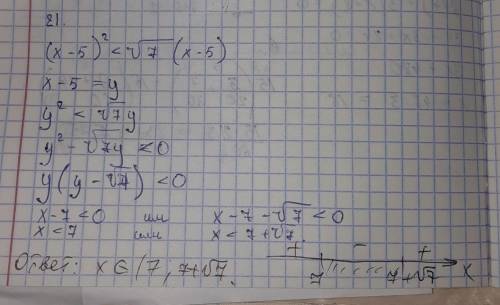 21.
(x-5)² < √7 (x-5)
x-5 = y
y² < √7y
y² - √7y < 0
y(y-√7) < 0
x-7<0 или x-7-√7<0
x<7 или x<7+√7
+ - +
7 7+√7 x
Ответ: x∈(7, 7+√7.